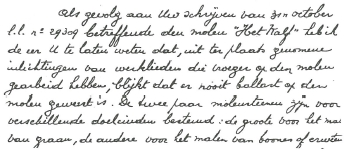 Als gevolg aan Uw schrijven van 31n october
l.l. n° 29309 betreffende den molen "Het Kalf" heb ik
de eer U te laten weten dat, uit ter plaats genomene
inlichtingen van werklieden die vroeger op den molen
gearbeid hebben, blijkt dat er nooit ballast op den
molen geweest is. De twee paar molensteenen zijn voor
verschillende doeleinden bestemd: de groote voor het ma
van graan, de andere voor het malen van boonen of erwten